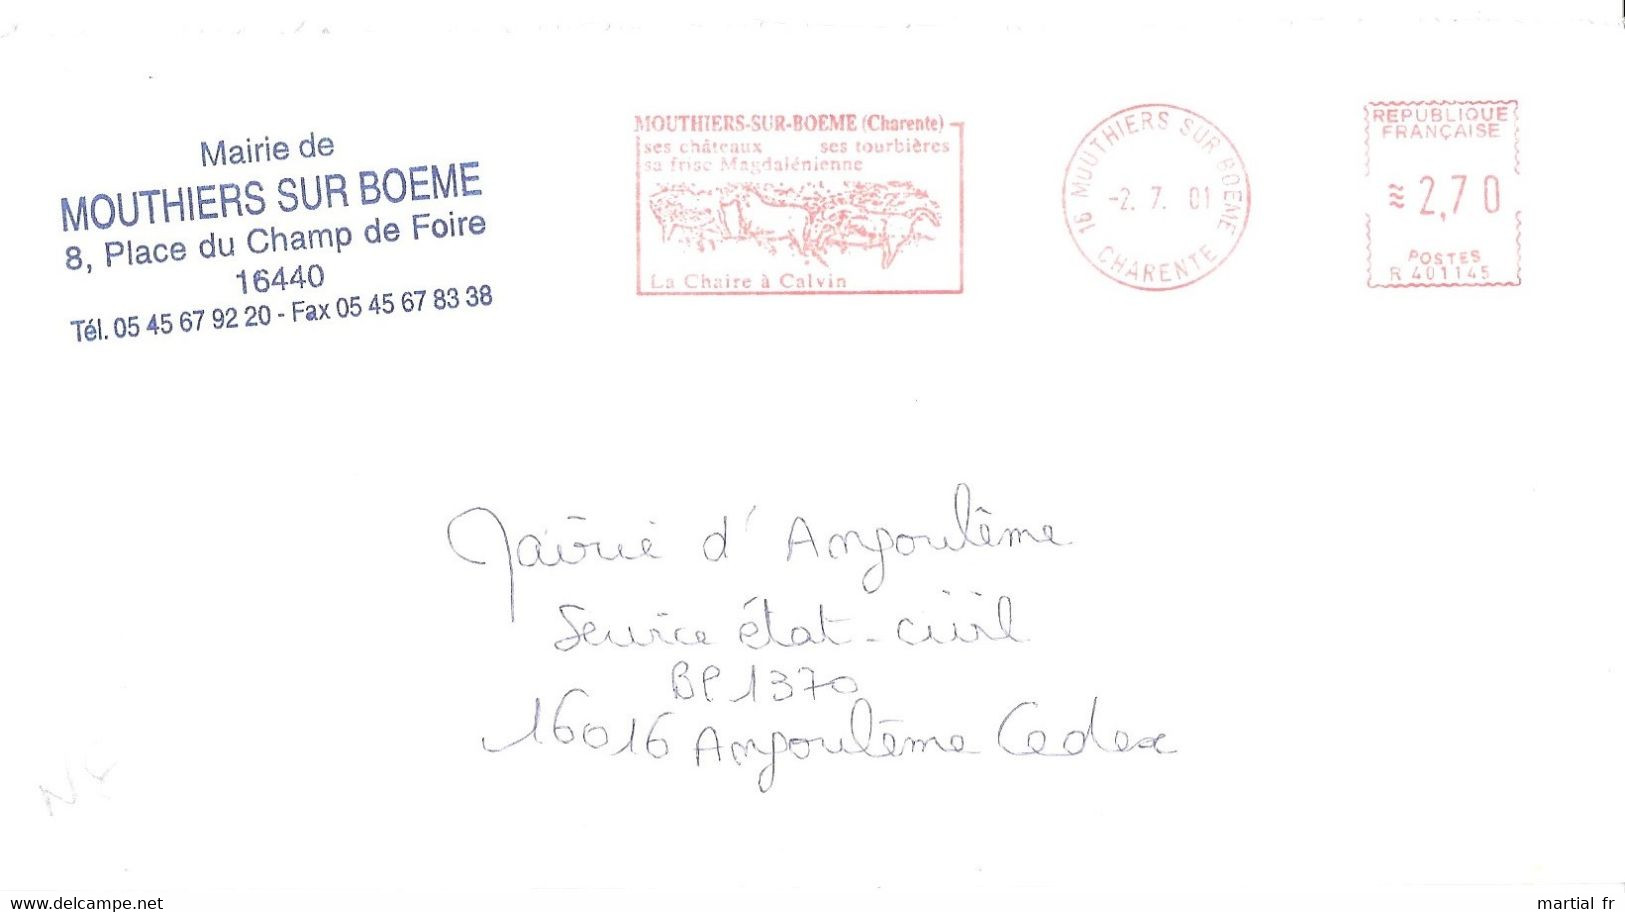 Mairie de
MOUTHIERS SUR BOEME
8, Place du Champ de Foire
16440
Tél. 05 45 67 92 20 - Fax 05 45 67 83 38
MOUTHIERS-SUR-BOEME (Charente)
ses châteaux ses tourbières
sa frise Magdalénienne
La Chaire à Calvin
16 MOUTHIERS SUR BOEME
-2. 7. 01
CHARENTE
REPUBLIQUE
FRANÇAISE
2,70
POSTES
R 401145
Mairie d'Angoulême
Service état-civil
BP 1370
16016 Angoulême Cedex
www.delcampe.net
martial fr